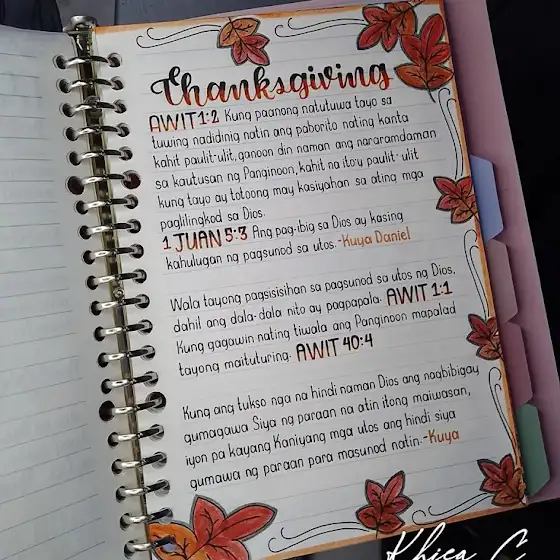 Thanksgiving
AWIT 1:2 Kung paanong natutuwa tayo sa
tuwing nadidinig natin ang paborito nating kanta
kahit paulit-ulit, ganoon din naman ang nararamdaman
sa kautusan ng Panginoon, kahit na ito'y paulit-ulit
kung tayo ay totoong may kasiyahan sa ating mga
paglilingkod sa Dios.
1 JUAN 5:3 Ang pag-ibig sa Dios ay kasing
kahulugan ng pagsunod sa utos.-Kuya Daniel
Wala tayong pagsisisihan sa pagsunod sa utos ng Dios,
dahil ang dala-dala nito ay pagpapala. AWIT 1:1
Kung gagawin nating tiwala ang Panginoon mapalad
tayong maituturing. AWIT 40:4
Kung ang tukso nga na hindi naman Dios ang nagbibigay
gumagawa Siya ng paraan na atin itong maiwasan,
iyon pa kayang Kaniyang mga utos ang hindi siya
gumawa ng paraan para masunod natin.-Kuya
Khiea C